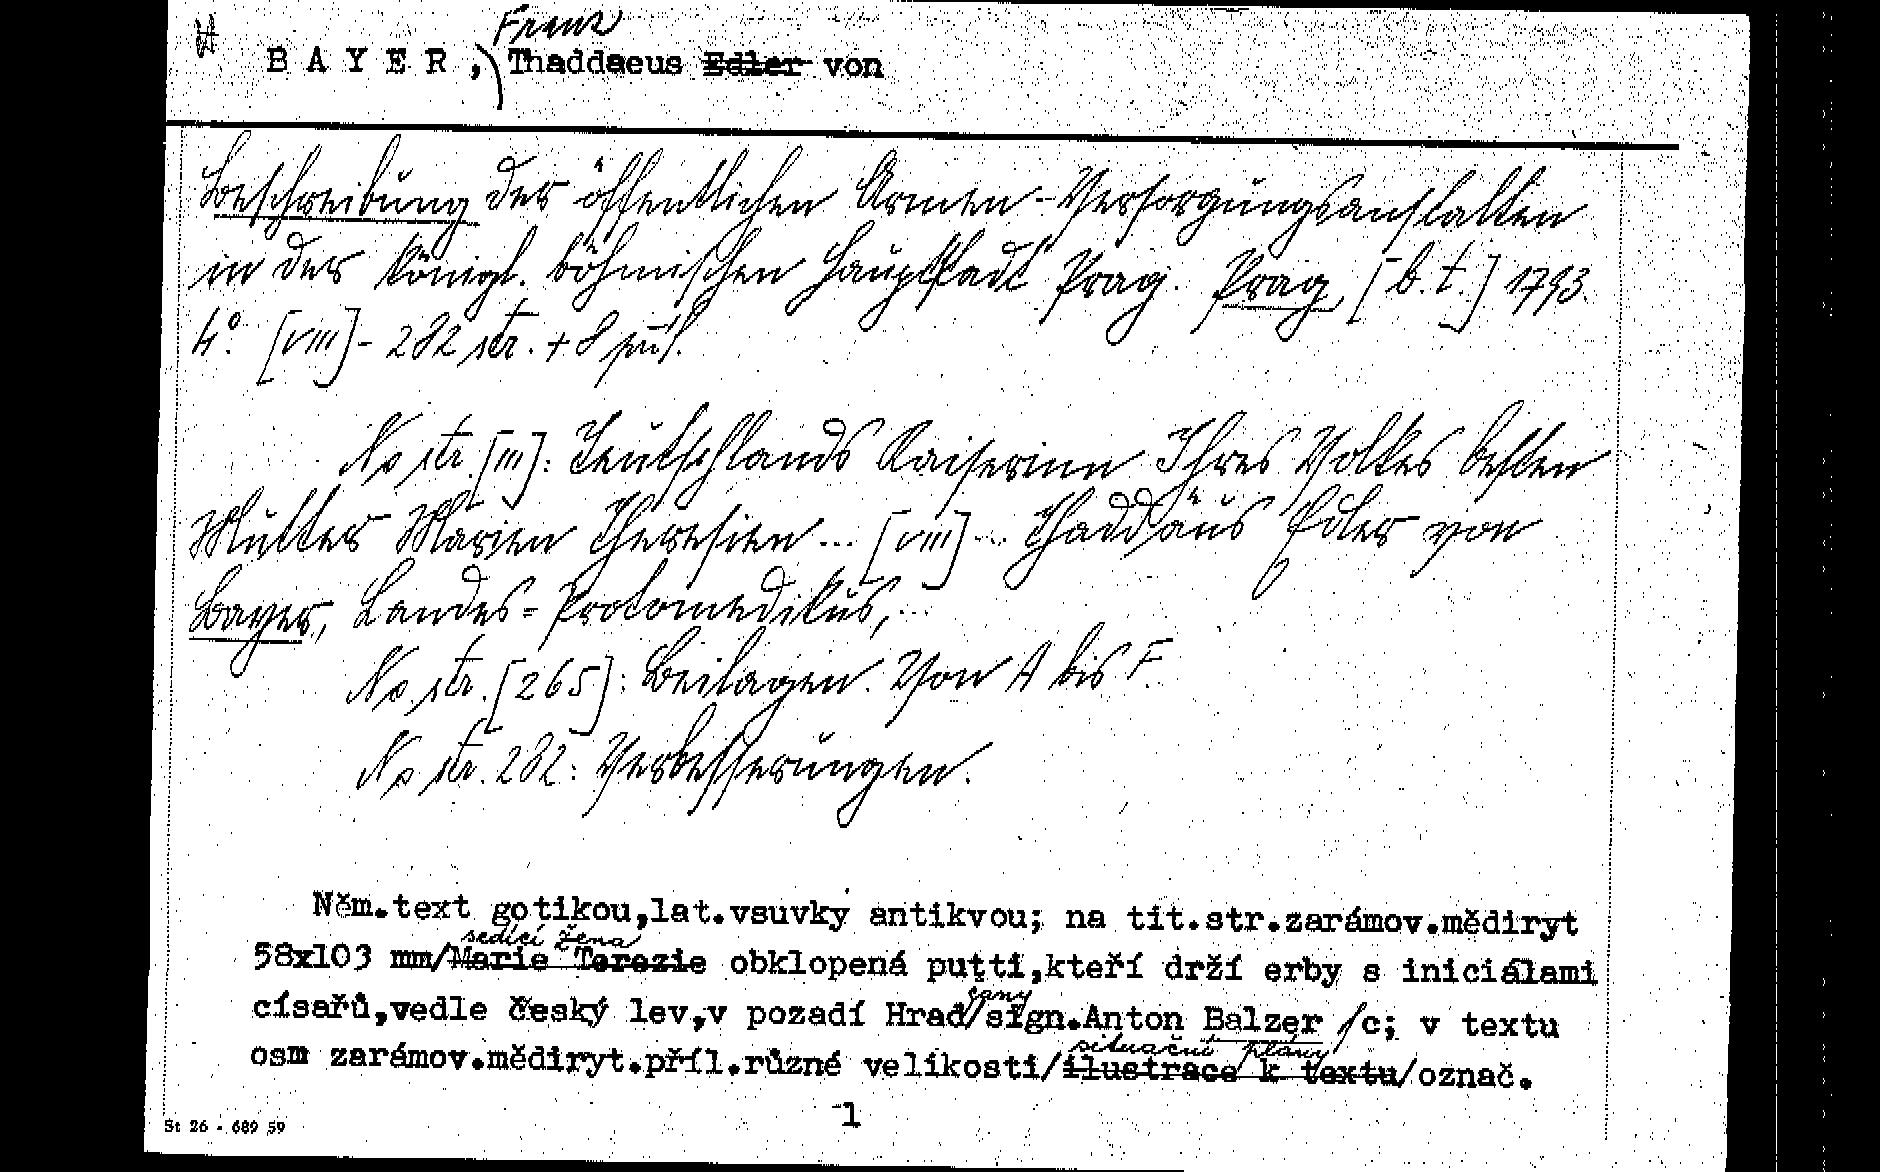 Franz
BAYER, Thaddaeus Edler von
Beschreibung der öffentlichen Armen-Versorgungsanstalten
in der königl. böhmischen Hauptstadt Prag. Prag, [b.t.] 1793
4° [VIII] - 282 str. + 8 příl.
Na str. [III]: Teutschlands Kaiserinn Ihres Volkes besten
Mutter Marien Theresien ... [VIII] ... Thaddäus Edler von
Bayer, Landes-Protomedikus, ...
Na str. [265]: Beilagen. Von A bis F.
Na str. 282: Verbesserungen.
Něm.text gotikou,lat.vsuvky antikvou; na tit.str.zarámov.mědiryt
sedící žena
58x103 mm/Marie Terezie obklopená putti,kteří drží erby s iniciálami
čany
císařů,vedle český lev,v pozadí Hrad/sign.Anton Balzer /c; v textu
situační plány
osm zarámov.mědiryt.příl.různé velikosti/ilustrace k textu/označ.
1
St 26 - 689 59